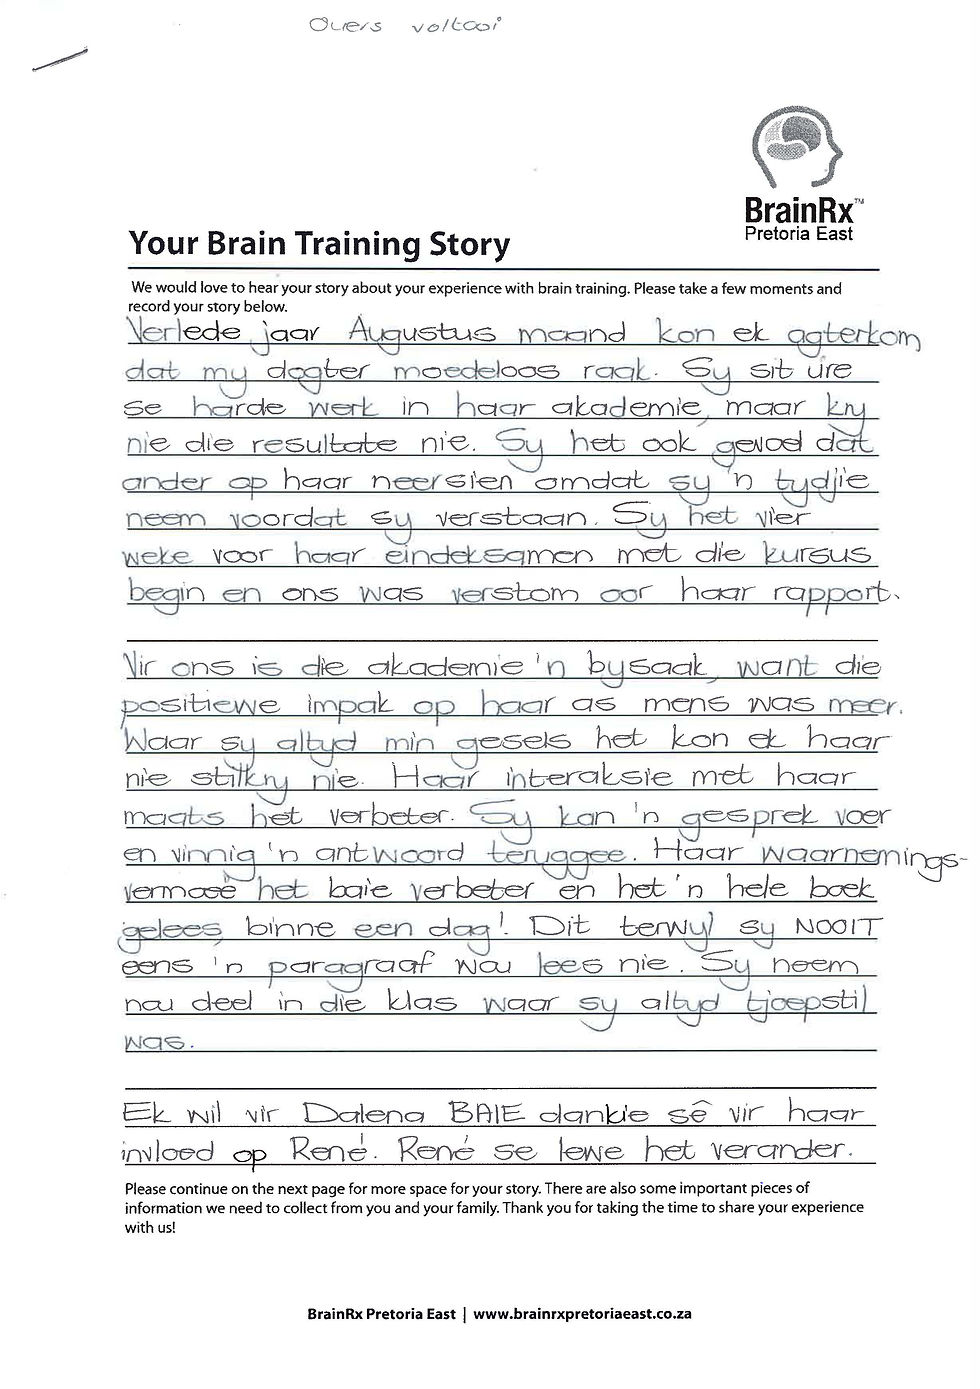 Ouers voltooi
BrainRx™
Pretoria East
Your Brain Training Story
We would love to hear your story about your experience with brain training. Please take a few moments and
record your story below.
Verlede jaar Augustus maand kon ek agterkom
dat my dogter moedeloos raak. Sy sit ure
se harde werk in haar akademie, maar kry
nie die resultate nie. Sy het ook gevoel dat
ander op haar neersien omdat sy 'n tydjie
neem voordat sy verstaan. Sy het vier
weke voor haar eindeksamen met die kursus
begin en ons was verstom oor haar rapport.
Vir ons is die akademie 'n bysaak, want die
positiewe impak op haar as mens was meer.
Waar sy altyd min gesels het kon ek haar
nie stilkry nie. Haar interaksie met haar
maats het verbeter. Sy kan 'n gesprek voer
en vinnig 'n antwoord teruggee. Haar waarnemings-
vermoeë het baie verbeter en het 'n hele boek
gelees binne een dag! Dit terwyl sy NOOIT
eens 'n paragraaf wou lees nie. Sy neem
nou deel in die klas waar sy altyd tjoepstil
was.
Ek wil vir Dalena BAIE dankie sê vir haar
invloed op René. René se lewe het verander.
Please continue on the next page for more space for your story. There are also some important pieces of
information we need to collect from you and your family. Thank you for taking the time to share your experience
with us!
BrainRx Pretoria East | www.brainrxpretoriaeast.co.za